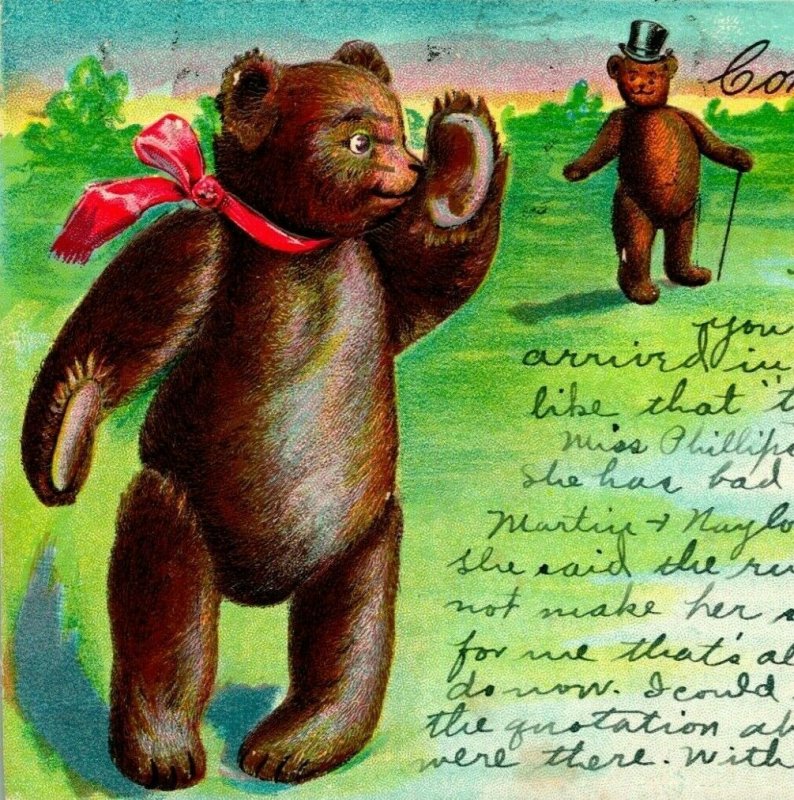 Co
you
arrived in
like that "t
Miss Phillips
She has bad
Martin + Naylo
she said the ru
not make her s
for me that's al
do now. I could
the quotation ab
were there. With